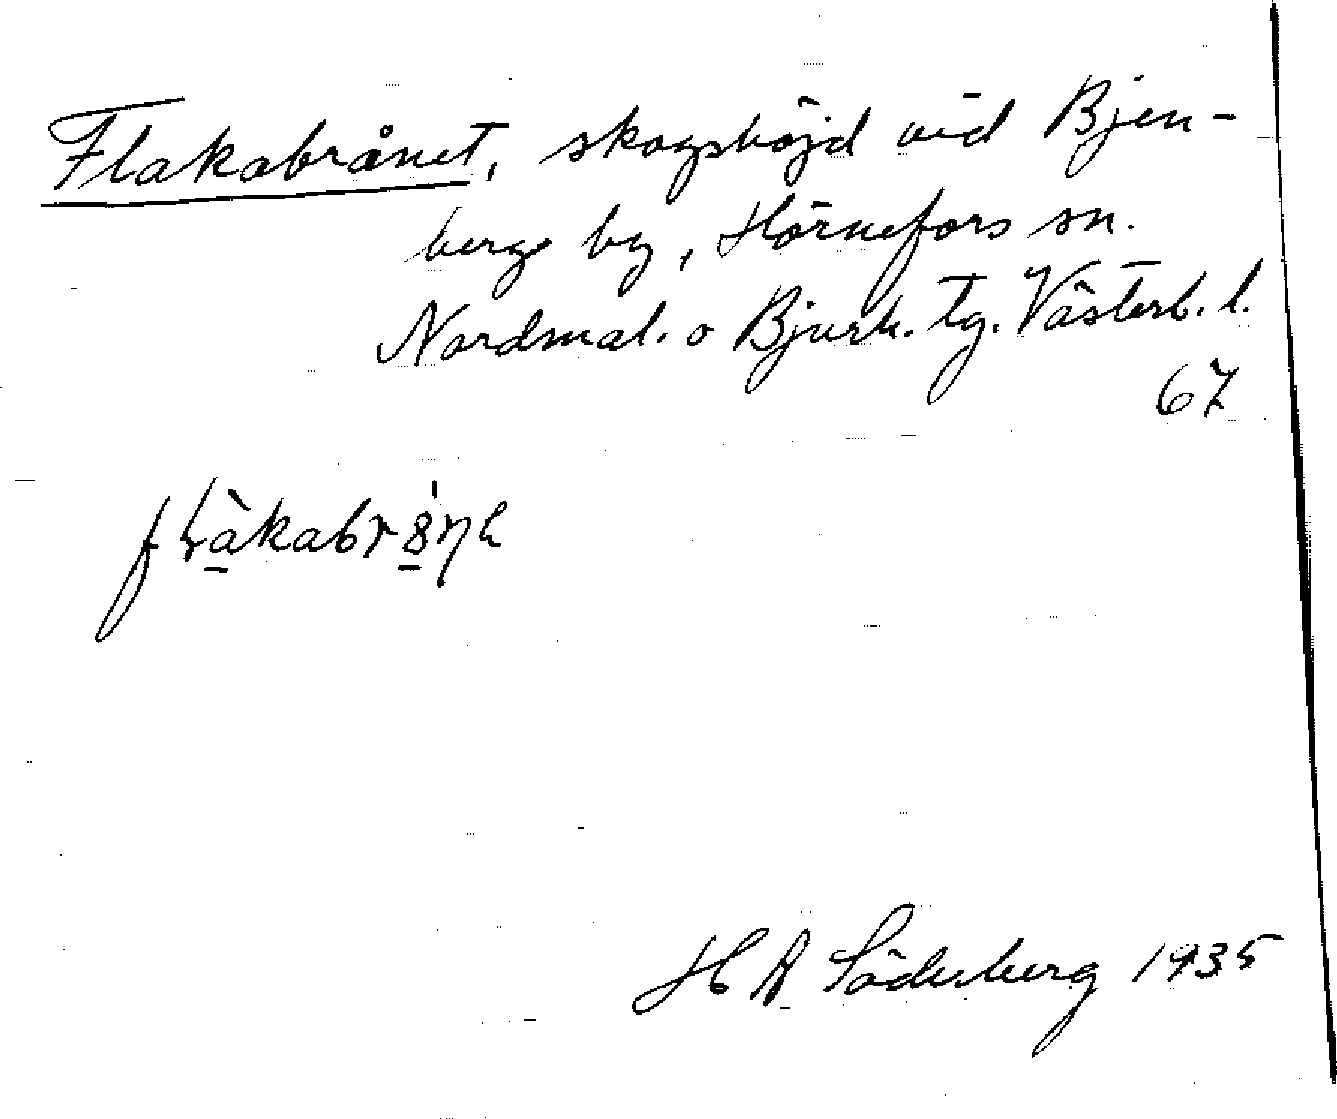 Flakabrånet, skogshöjd vid Bjen-
berge by, Hörnefors sn.
Nordmal. o Bjurh. tg. Västerb. l.
67
H A Söderberg 1935